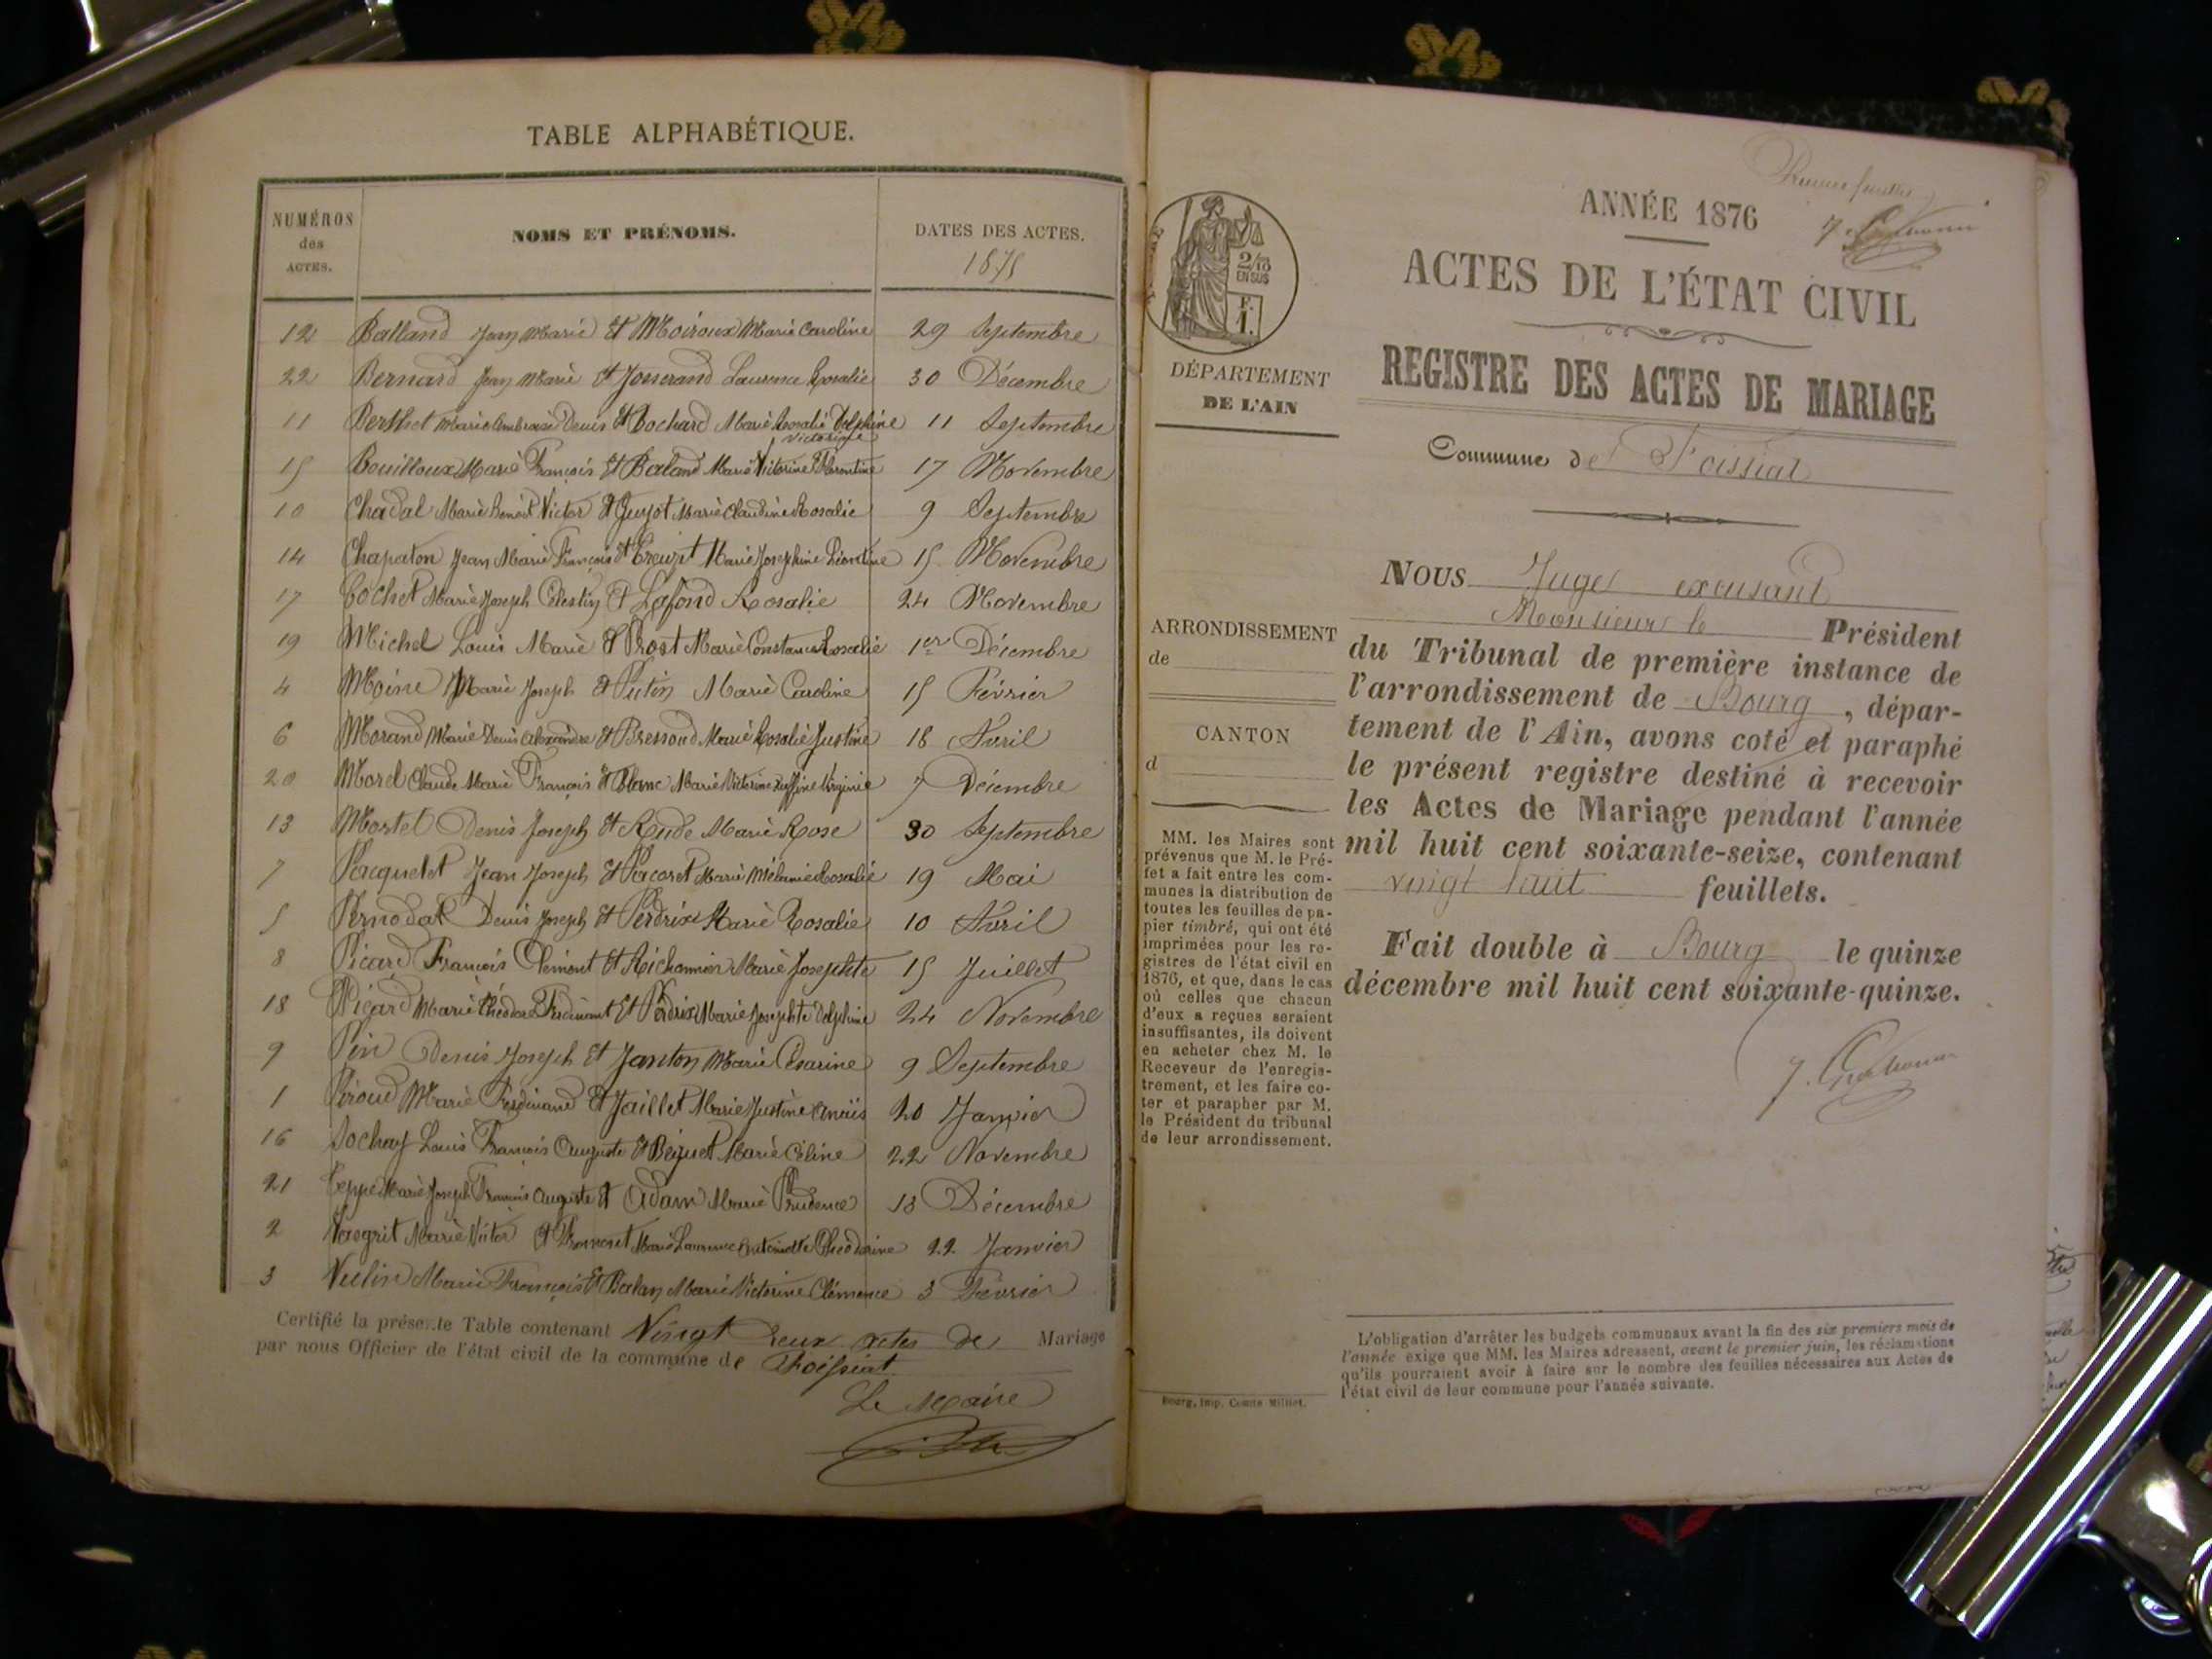 TABLE ALPHABÉTIQUE.
NUMÉROS
des
ACTES.
NOMS ET PRÉNOMS.
DATES DES ACTES.
1875
12 Balland Jean Marie Et Moiroux Marie Caroline 29 Septembre
22 Bernard Jean Marie Et Josserand Laurence Rosalie 30 Décembre
11 Berthet Marie Ambroise Denis Et Bochard Marie Rosalie Delphine 11 Septembre
Victorine
15 Bouilloux Marie François Et Baland Marie Victorine Florentine 17 Novembre
10 Chadal Marie Benoit Victor Et Guyot Marie Claudine Rosalie 9 Septembre
14 Chapaton Jean Marie François Et Creuzet Marie Josephine Léontine 15 Novembre
17 Cochet Marie Joseph Célestin Et Lafond Rosalie 24 Novembre
19 Michel Louis Marie Et Prost Marie Constance Rosalie 1er Décembre
4 Moine Marie Joseph Et Putin Marie Caroline 15 Février
6 Morand Marie Denis Alexandre Et Bressoud Marie Rosalie Justine 18 Avril
20 Morel Claude Marie François Et Blanc Marie Victorine Zéffine Virginie 7 Décembre
13 Mortel Denis Joseph Et Rude Marie Rose 30 Septembre
7 Pacquelet Jean Joseph Et Pacoret Marie Mélanie Rosalie 19 Mai
5 Pernodat Denis Joseph Et Perdrix Marie Rosalie 10 Avril
8 Picard François Clémont Et Richonnier Marie Josephte 15 Juillet
18 Picard Marie Théodore Ferdinant Et Perdrix Marie Josephte Delphine 24 Novembre
9 Pin Denis Joseph Et Janton Marie Césarine 9 Septembre
1 Piroud Marie Ferdinand Et Jaillet Marie Justine Anaïs 20 Janvier
16 Sochay Louis François Auguste Et Béguet Marie Céline 22 Novembre
21 Teppe Marie Joseph François Auguste Et Adam Marie Prudence 13 Décembre
2 Vaogrit Marie Victor Et Marie Laurence Antoinette Théodorine 22 Janvier
3 Vulin Marie François Et Balan Marie Victorine Clémence 3 Février
Certifié la présente Table contenant Vingt deux actes de Mariage
par nous Officier de l'état civil de la commune de Foissiat
Le Maire
ANNÉE 1876
ACTES DE L'ÉTAT CIVIL
REGISTRE DES ACTES DE MARIAGE
Commune de Foissiat
2/10
EN SUS
F.
1.
DÉPARTEMENT
DE L'AIN
ARRONDISSEMENT
de
CANTON
d
MM. les Maires sont
prévenus que M. le Pré-
fet a fait entre les com-
munes la distribution de
toutes les feuilles de pa-
pier timbré, qui ont été
imprimées pour les re-
gistres de l'état civil en
1876, et que, dans le cas
où celles que chacun
d'eux a reçues seraient
insuffisantes, ils doivent
en acheter chez M. le
Receveur de l'enregis-
trement, et les faire co-
ter et parapher par M.
le Président du tribunal
de leur arrondissement.
Bourg, Imp. Comte Milliet.
NOUS Juge excusant
Monsieur le Président
du Tribunal de première instance de
l'arrondissement de Bourg, dépar-
tement de l'Ain, avons coté et paraphé
le présent registre destiné à recevoir
les Actes de Mariage pendant l'année
mil huit cent soixante-seize, contenant
vingt huit feuillets.
Fait double à Bourg le quinze
décembre mil huit cent soixante-quinze.
L'obligation d'arrêter les budgets communaux avant la fin des six premiers mois de
l'année exige que MM. les Maires adressent, avant le premier juin, les réclamations
qu'ils pourraient avoir à faire sur le nombre des feuilles nécessaires aux Actes de
l'état civil de leur commune pour l'année suivante.